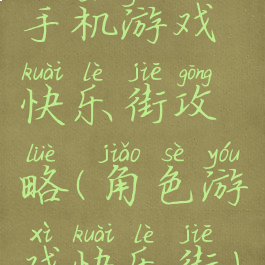 手机游戏
kuài lè jiē gōng
快乐街攻
lüè jiǎo sè yóu
略(角色游
xì kuài lè jiē
戏快乐街)